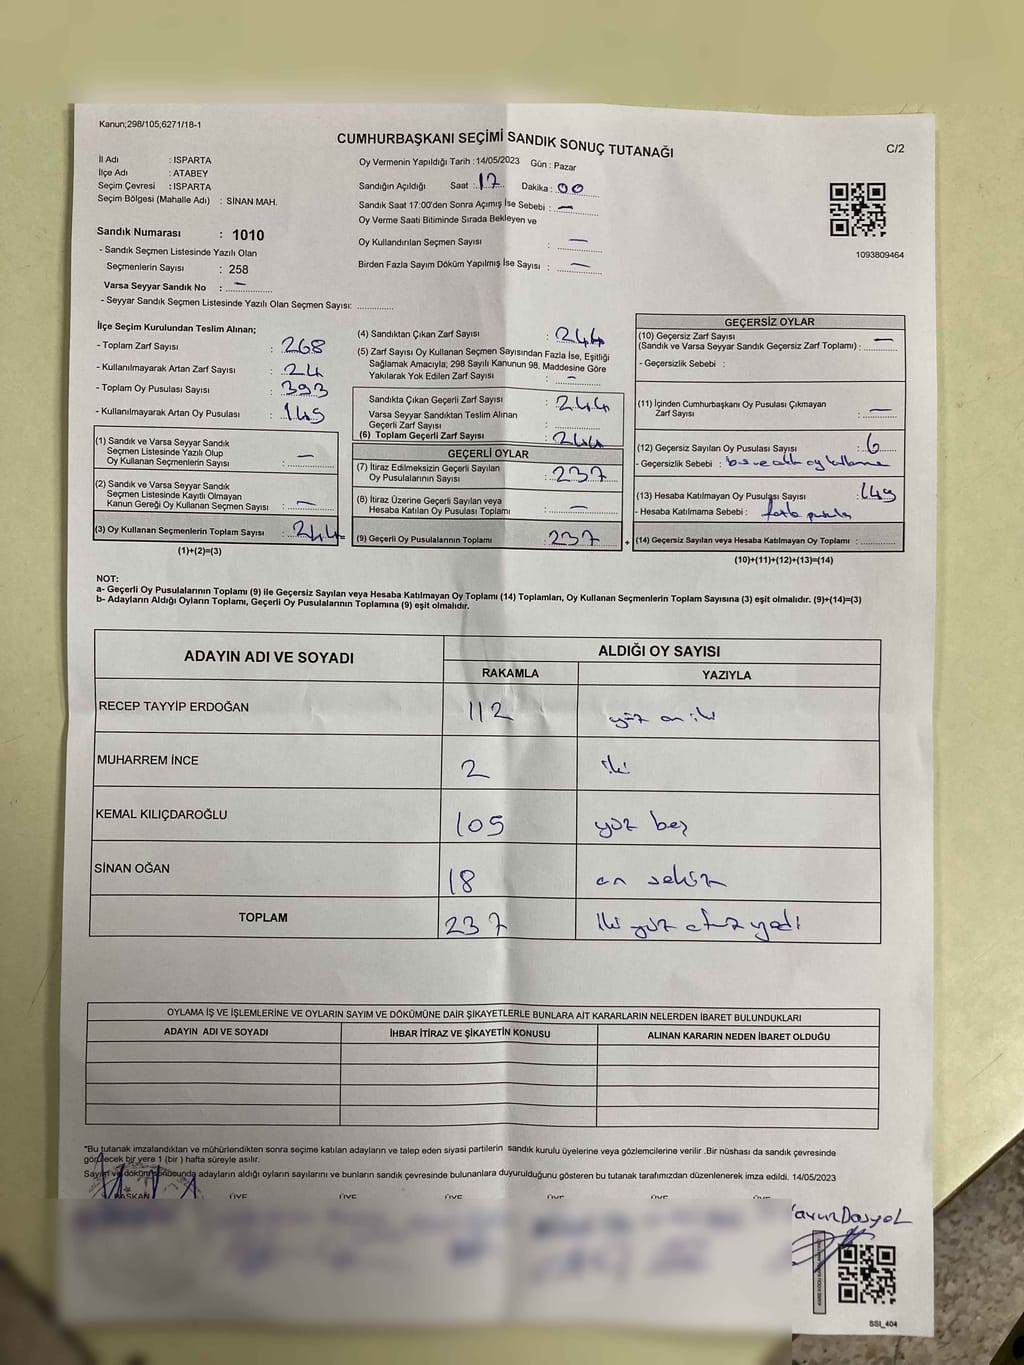 Kanun;298/105,6271/18-1
CUMHURBAŞKANI SEÇİMİ SANDIK SONUÇ TUTANAĞI
C/2
İl Adı : ISPARTA
İlçe Adı : ATABEY
Seçim Çevresi : ISPARTA
Seçim Bölgesi (Mahalle Adı) : SİNAN MAH.
Sandık Numarası : 1010
- Sandık Seçmen Listesinde Yazılı Olan
Seçmenlerin Sayısı : 258
Varsa Seyyar Sandık No : —
- Seyyar Sandık Seçmen Listesinde Yazılı Olan Seçmen Sayısı: ............
Oy Vermenin Yapıldığı Tarih : 14/05/2023 Gün : Pazar
Sandığın Açıldığı Saat : 17 Dakika : 00
Sandık Saat 17:00'den Sonra Açımış İse Sebebi : —
Oy Verme Saati Bitiminde Sırada Bekleyen ve
Oy Kullandırılan Seçmen Sayısı : —
Birden Fazla Sayım Döküm Yapılmış İse Sayısı : —
1093809464
İlçe Seçim Kurulundan Teslim Alınan;
- Toplam Zarf Sayısı : 268
- Kullanılmayarak Artan Zarf Sayısı : 24
- Toplam Oy Pusulası Sayısı : 393
- Kullanılmayarak Artan Oy Pusulası : 145
(1) Sandık ve Varsa Seyyar Sandık
Seçmen Listesinde Yazılı Olup
Oy Kullanan Seçmenlerin Sayısı : —
(2) Sandık ve Varsa Seyyar Sandık
Seçmen Listesinde Kayıtlı Olmayan
Kanun Gereği Oy Kullanan Seçmen Sayısı : —
(3) Oy Kullanan Seçmenlerin Toplam Sayısı : 244
(1)+(2)=(3)
=
(4) Sandıktan Çıkan Zarf Sayısı : 244
(5) Zarf Sayısı Oy Kullanan Seçmen Sayısından Fazla İse, Eşitliği
Sağlamak Amacıyla; 298 Sayılı Kanunun 98. Maddesine Göre
Yakılarak Yok Edilen Zarf Sayısı : —
Sandıkta Çıkan Geçerli Zarf Sayısı : 244
Varsa Seyyar Sandıktan Teslim Alınan
Geçerli Zarf Sayısı :
(6) Toplam Geçerli Zarf Sayısı : 244
GEÇERLİ OYLAR
(7) İtiraz Edilmeksizin Geçerli Sayılan
Oy Pusulalarının Sayısı : 237
(8) İtiraz Üzerine Geçerli Sayılan veya
Hesaba Katılan Oy Pusulası Toplamı : —
(9) Geçerli Oy Pusulalarının Toplamı : 237
+
GEÇERSİZ OYLAR
(10) Geçersiz Zarf Sayısı
(Sandık ve Varsa Seyyar Sandık Geçersiz Zarf Toplamı) : —
- Geçersizlik Sebebi :
(11) İçinden Cumhurbaşkanı Oy Pusulası Çıkmayan
Zarf Sayısı : —
(12) Geçersiz Sayılan Oy Pusulası Sayısı : 6
- Geçersizlik Sebebi :
(13) Hesaba Katılmayan Oy Pusulası Sayısı : 149
- Hesaba Katılmama Sebebi : fazla pusula
(14) Geçersiz Sayılan veya Hesaba Katılmayan Oy Toplamı : ............
(10)+(11)+(12)+(13)=(14)
NOT:
a- Geçerli Oy Pusulalarının Toplamı (9) ile Geçersiz Sayılan veya Hesaba Katılmayan Oy Toplamı (14) Toplamları, Oy Kullanan Seçmenlerin Toplam Sayısına (3) eşit olmalıdır. (9)+(14)=(3)
b- Adayların Aldığı Oyların Toplamı, Geçerli Oy Pusulalarının Toplamına (9) eşit olmalıdır.
ADAYIN ADI VE SOYADI
ALDIĞI OY SAYISI
RAKAMLA YAZIYLA
RECEP TAYYİP ERDOĞAN 112 yüz on iki
MUHARREM İNCE 2 iki
KEMAL KILIÇDAROĞLU 105 yüz beş
SİNAN OĞAN 18 on sekiz
TOPLAM 237 İki yüz otuz yedi
OYLAMA İŞ VE İŞLEMLERİNE VE OYLARIN SAYIM VE DÖKÜMÜNE DAİR ŞİKAYETLERLE BUNLARA AİT KARARLARIN NELERDEN İBARET BULUNDUKLARI
ADAYIN ADI VE SOYADI İHBAR İTİRAZ VE ŞİKAYETİN KONUSU ALINAN KARARIN NEDEN İBARET OLDUĞU
*Bu tutanak imzalandıktan ve mühürlendikten sonra seçime katılan adayların ve talep eden siyasi partilerin sandık kurulu üyelerine veya gözlemcilerine verilir .Bir nüshası da sandık çevresinde
görülecek bir yere 1 (bir ) hafta süreyle asılır.
Sayım ve döküm sonucunda adayların aldığı oyların sayılarını ve bunların sandık çevresinde bulunanlara duyurulduğunu gösteren bu tutanak tarafımızdan düzenlenerek imza edildi. 14/05/2023
BAŞKAN ÜYE ÜYE ÜYE ÜYE ÜYE ÜYE
SSI_404